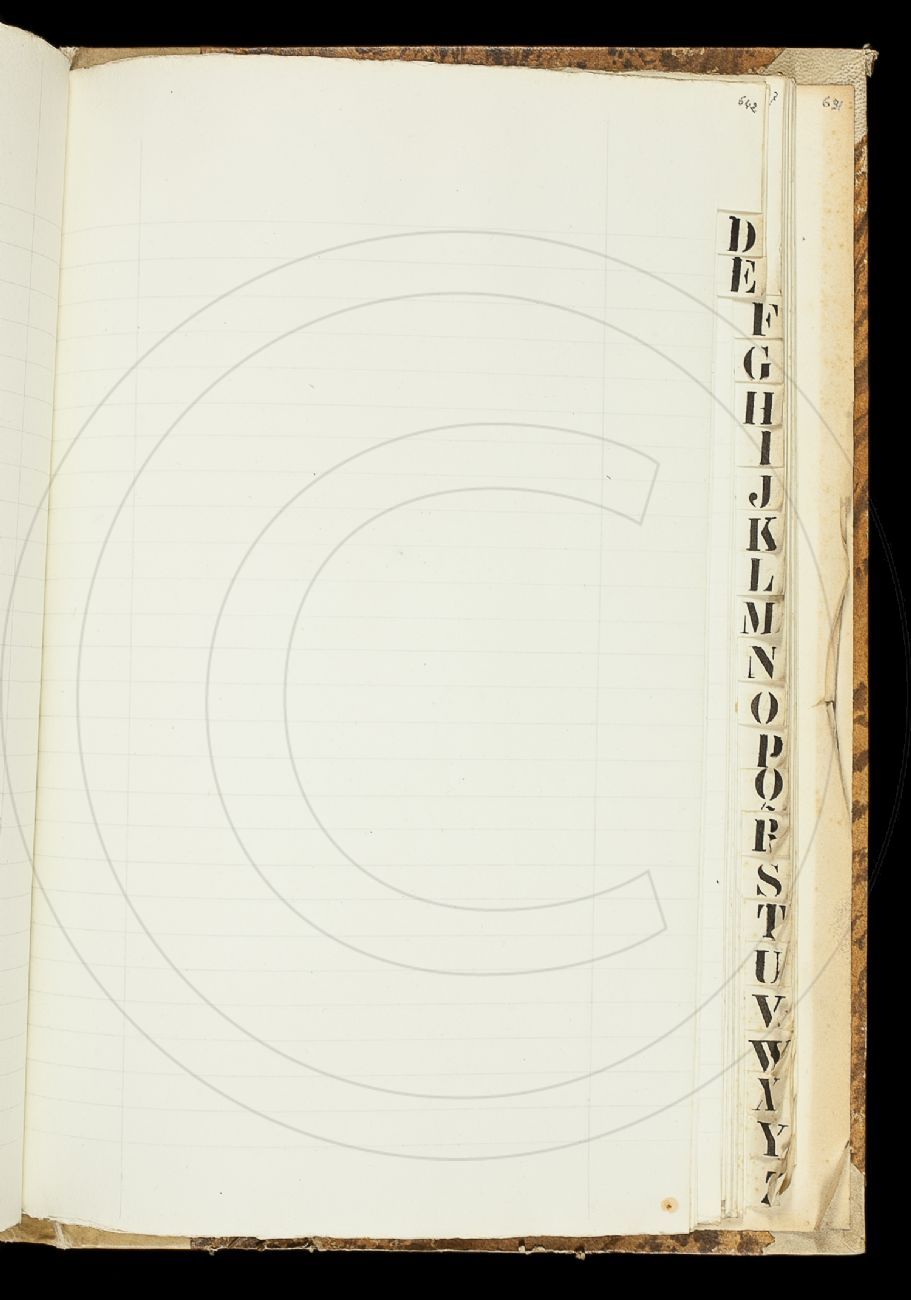 642
691
D
E
F
G
H
I
J
K
L
M
N
O
P
Q
R
S
T
U
V
W
X
Y
Z